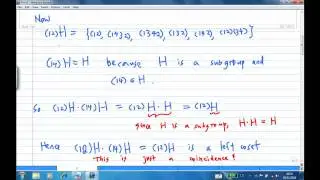 Now
(12)H = {(12), (1432), (1342), (132), (142), (12)(34)}
(14)H = H because H is a subgroup and
(14) ∈ H.
So (12)H · (14)H = (12) H · H = (12)H
since H is a subgroup, H·H = H
Hence (12)H · (14)H = (12)H is a left coset
This is just a coincidence!